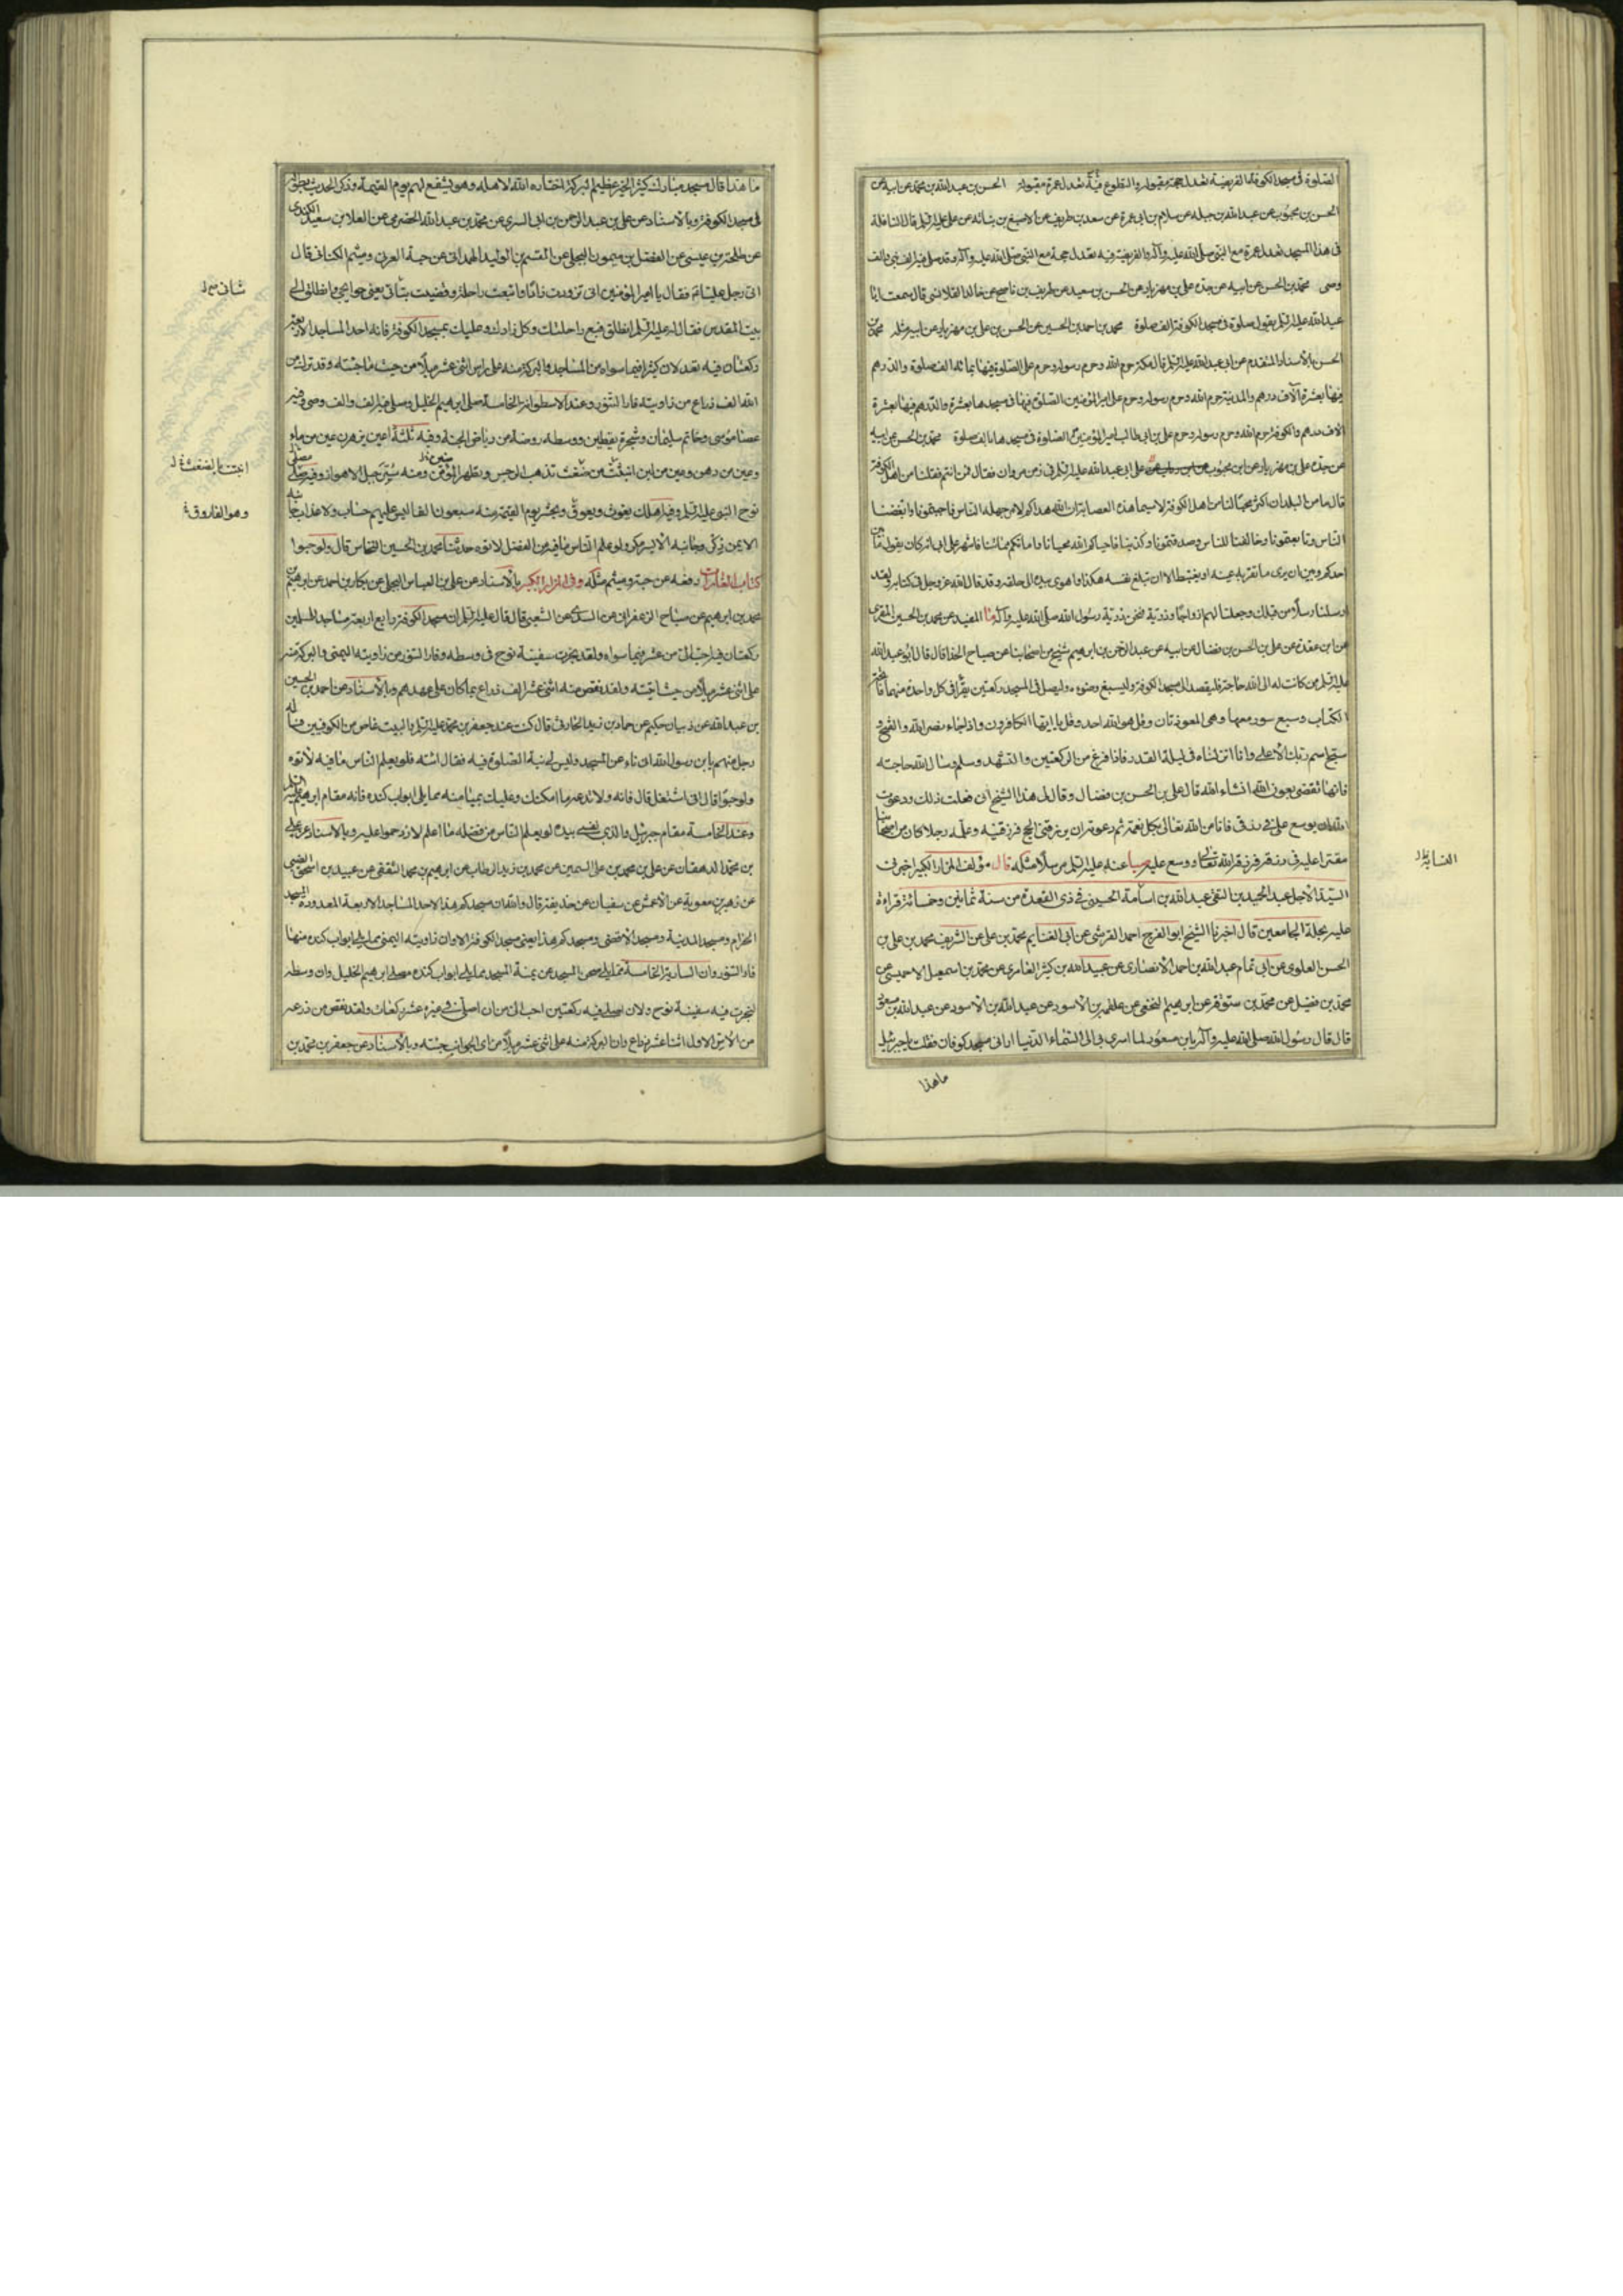 الصلوة في مسجد الكوفة الفريضة تعدل حجة مقبولة والتطوع فيه تعدل عمرة مقبولة الحسن بن عبد الله بن محمد عن ابيه عن
الحسن بن محبوب عن عبد الله بن جبلة عن سلام بن ابي عمرة عن سعد بن طريف عن الاصبغ بن نباته عن علي عليه السلم قال النافلة
في هذا المسجد تعدل عمرة مع النبي صلى الله عليه وآله والفريضة فيه تعدل حجة مع النبي صلى الله عليه وآله وقد صلى فيه الف نبي والف
وصى محمد بن الحسن عن ابيه عن جده علي بن مهزيار عن الحسن بن سعيد عن طريف بن ناصح عن خالد القلانسي قال سمعت ابا
عبد الله عليه السلم يقول صلوة في مسجد الكوفة الف صلوة محمد بن احمد بن الحسين عن الحسن بن علي بن مهزيار عن ابيه مثله محمد بن
الحسن بالاسناد المتقدم عن ابي عبد الله عليه السلم قال مكة حرم الله وحرم رسوله وحرم علي الصلوة فيها بمائة الف صلوة والدرهم
فيها بعشرة آلاف درهم والمدينة حرم الله وحرم رسوله وحرم علي امير المؤمنين الصلوة فيها في مسجدها بعشرة والدرهم فيها بعشرة
الاف درهم والكوفة حرم الله وحرم رسوله وحرم علي بن ابي طالب امير المؤمنين الصلوة في مسجدها بالف صلوة محمد بن الحسن عن ابيه
عن جده علي بن مهزيار عن ابن محبوب على ابي عبد الله عليه السلم في زمن مروان فقال ممن انتم فقلنا من اهل الكوفة
قال ما من البلدان اكثر محبا لنا من اهل الكوفة لا سيما هذه العصابة ان الله هداكم لامر جهله الناس فاحببتمونا وابغضنا
الناس وتابعتمونا وخالفنا الناس وصدقتمونا وكذبنا فاحياكم الله محيانا واماتكم مماتنا فاشهد على ابي انه كان يقول ما بين
احدكم وبين ان يرى ما تقر به عينه او يغتبط الا ان تبلغ نفسه هكذا واهوى بيده الى حلقه وقد قال الله عز وجل في كتابه ولقد
ارسلنا رسلا من قبلك وجعلنا لهم ازواجا وذرية فنحن ذرية رسول الله صلى الله عليه وآله المفيد عن محمد بن الحسين المقري
عن ابن عقدة عن علي بن الحسن بن فضال عن ابيه عن عبد الرحمن بن ابرهيم شيخ من اصحابنا عن صباح الحذا قال قال ابو عبد الله
عليه السلم من كانت له الى الله حاجة فليقصد الى مسجد الكوفة وليسبغ وضوءه وليصل في المسجد ركعتين يقرأ في كل واحدة منهما فاتحة
الكتاب وسبع سور معها وهي المعوذتان وقل هو الله احد وقل يا ايها الكافرون واذا جاء نصر الله والفتح و
سبح اسم ربك الاعلى وانا انزلناه في ليلة القدر فاذا فرغ من الركعتين والتشهد وسلم وسال الله حاجته
فانها تقضى بعون الله انشاء الله قال علي بن الحسن بن فضال وقال لي هذا الشيخ اني فعلت ذلك ودعوت
الله ان يوسع علي في رزقي فانا من الله تعالى بكل نعمة ثم دعوته ان يرزقني الحج فرزقنيه وعلمته رجلا كان من اصحابنا
مقترا عليه في رزقه فرزقه الله تعالى ووسع عليه عنه عليه السلم مرسلا مثله قال مؤلف المزار الكبير اخبرني
السيد الاجل عبد الحميد بن التقي عبد الله بن اسامة الحسيني في ذي القعدة من سنة ثمانين وخمسمائة قراءة
عليه بحلة الجامعين قال اخبرنا الشيخ ابو الفرج احمد القرشي عن ابي الغنايم محمد بن علي عن الشريف محمد بن علي بن
الحسن العلوي عن ابي تمام عبد الله بن احمد الانصاري عن عبيد الله بن كثير العامري عن محمد بن اسمعيل الاحمسي عن
محمد بن فضيل عن محمد بن سوقة عن ابرهيم النخعي عن علقمة بن الاسود عن عبد الله بن الاسود عن عبد الله بن مسعود
قال قال رسول الله صلى الله عليه وآله يا بن مسعود لما اسرى بي الى السماء الدنيا اراني مسجد كوفان فقلت يا جبرئيل
ما هذا
ما هذا قال مسجد مبارك كثير الخير عظيم البركة اختاره الله لاهله وهو يشفع لهم يوم القيمة وذكر الحديث بطوله
في مسجد الكوفة وبالاسناد عن علي بن عبد الرحمن بن ابي السري عن محمد بن عبد الله الحضرمي عن العلا بن سعيد الكندي
عن طلحة بن عيسى عن الفضل بن ميمون البجلي عن القسم بن الوليد الهمداني عن حبة العرني وميثم الكناني قال
اتى رجل عليا ع فقال يا امير المؤمنين اني تزودت زادا وابتعت راحلة وقضيت بتاتي يعني حوايجي وانطلق الى
بيت المقدس فقال له عليه السلم انطلق فبع راحلتك وكل زادك وعليك بمسجد الكوفة فانه احد المساجد الاربعة
ركعتان فيه تعدلان كثيرا فيما سواه من المساجد والبركة منه على راس اثنى عشر ميلا من حيث ما جئته وقد ترك من
اسه الف ذراع من زاويته فار التنور وعند الاسطوانة الخامسة صلى ابرهيم الخليل وصلى فيه الف والف وصى وفيه
عصا موسى وخاتم سليمان وشجرة يقطين ووسطه روضة من رياض الجنة وفيه ثلثة اعين يزهرن عين من ماء
وعين من دهن وعين من لبن انبتت من ضغث تذهب الرجس وتطهر المؤمن ومنه سير جبل الاهواز وفيه مصلى
نوح النبي عليه السلم وفيه اهلك يغوث ويعوق ويحشر يوم القيمة منه سبعون الفا ليس عليهم حساب ولا عذاب جانبه
الايمن ذكر وجانبه الايسر مكر ولو علم الناس ما فيه من الفضل لاتوه حدثنا محمد بن الحسين النحاس قال ولو حبوا
كتاب الغارات رفعه عن حبة وميثم مثله وفي المزار الكبير بالاسناد عن علي بن العباس البجلي عن بكار بن احمد عن ابرهيم بن
محمد بن ابرهيم عن صباح الزعفراني عن السدي عن الشعبي قال قال عليه السلم ان مسجد الكوفة رابع اربعة مساجد المسلمين
ركعتان فيه احب الى من عشر فيما سواه ولقد نجرت سفينة نوح في وسطه وفار التنور من زاويته اليمنى والبركة منه
على اثنى عشر ميلا من حيث اتيته ولقد نقص منه اثنى عشر الف ذراع بما كان على عهدهم وبالاسناد عن احمد بن الحسين
بن عبد الله عن ذبيان بن حكيم عن حماد بن زيد الحارثي قال كنت عند جعفر بن محمد عليه السلم والبيت غاص من الكوفيين فساله
رجل منهم يا بن رسول الله اني ناء عن المسجد وليس لي نية الصلوة فيه فقال ائته فلو يعلم الناس ما فيه لاتوه
ولو حبوا قال اني اشتغل قال فاته ولا تدعه ما امكنك وعليك بميامنه مما يلي ابواب كندة فانه مقام ابرهيم عليه السلم
وعند الخامسة مقام جبرئيل والذي نفسي بيده لو يعلم الناس من فضله ما اعلم لازدحموا عليه وبالاسناد عن علي
بن محمد الدهقان عن علي بن محمد بن علي السمين عن محمد بن زيد الرطاب عن ابرهيم بن محمد الثقفي عن عبيد بن اسحق الضبي
عن زهير بن معوية عن الاعمش عن سفيان عن حذيفة قال والله ان مسجدكم هذا لاحد المساجد الاربعة المعدودة المسجد
الحرام ومسجد المدينة ومسجد الاقصى ومسجدكم هذا يعني مسجد الكوفة الا وان زاويته اليمنى مما يلي ابواب كندة منها
فار التنور وان السارية الخامسة مما يلي صحن المسجد عن يمنة المسجد مما يلي ابواب كندة مصلى ابرهيم الخليل وان وسطه
لنجرت فيه سفينة نوح ولان اصلي فيه ركعتين احب الى من ان اصلي في غيره عشر ركعات ولقد نقص من ذرعه
من الاس الاول اثنا عشر ذراع وان البركة منه على اثنى عشر ميلا من اي الجوانب جئته وبالاسناد عن جعفر بن محمد بن
وهو الفاروق